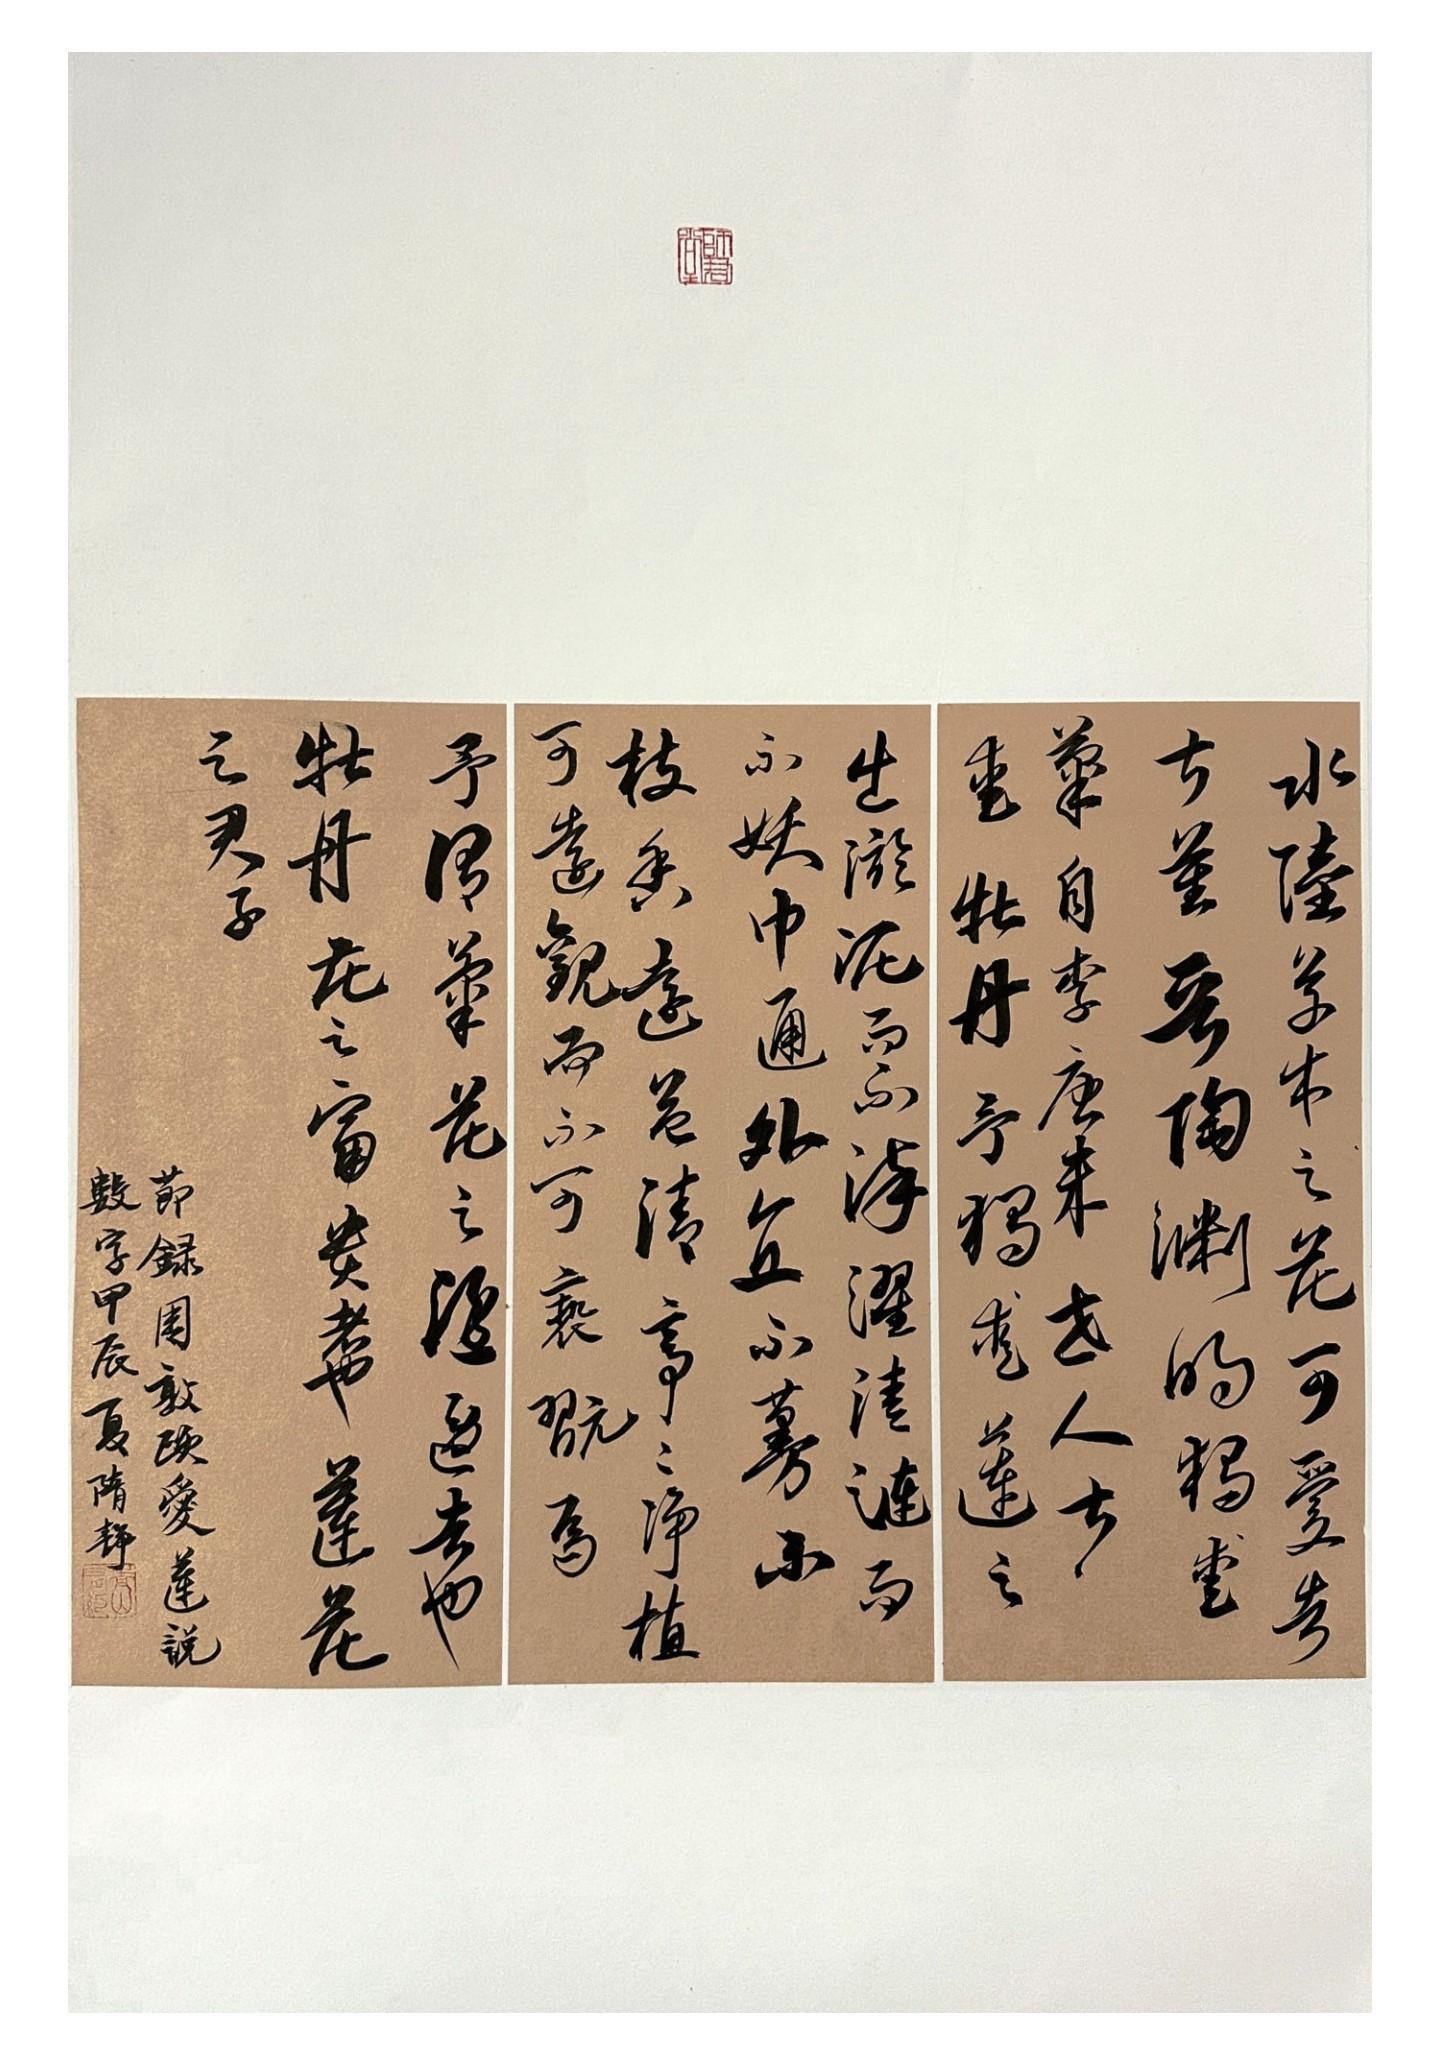 水陸草木之花可愛者
甚蕃晋陶渊明獨愛
菊自李唐来世人甚
愛牡丹予獨愛蓮之
出淤泥而不染濯清漣而
不妖中通外直不蔓不
枝香遠益清亭〻净植
可遠觀而不可褻翫焉
予謂菊花之隱逸者也
牡丹花之富貴者也蓮花
之君子
節録周敦頤愛蓮説
數字甲辰夏隋静